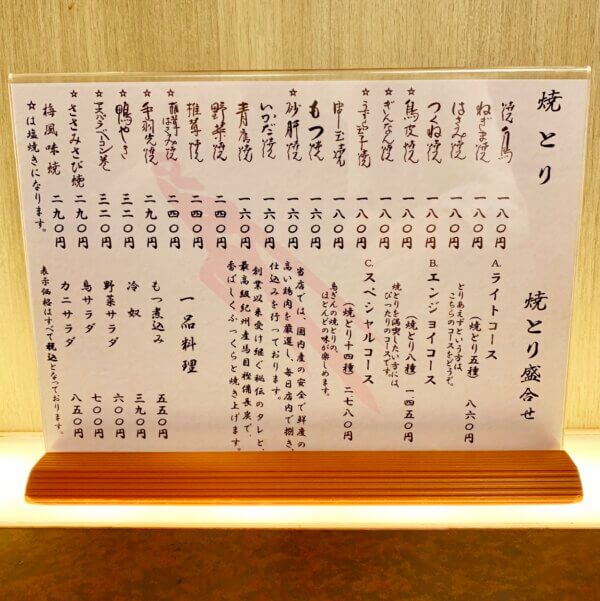 焼とり
焼き鳥 一八〇円
ねぎま焼 一八〇円
はさみ焼 一八〇円
つくね焼 一八〇円
☆鳥皮焼 一八〇円
☆ぎんなん焼 一八〇円
☆うずら玉子焼 一八〇円
一八〇円
もつ焼 一六〇円
☆砂肝焼 一六〇円
いかだ焼 一六〇円
☆青唐焼 一六〇円
野菜焼 二四〇円
椎茸焼 二四〇円
はさみ焼 二四〇円
☆手羽先焼 二九〇円
☆鴨やき 三二〇円
ベーコン巻 三二〇円
☆ささみさび焼 二九〇円
梅風味焼 二九〇円
☆は塩焼きになります。
焼とり盛合せ
A.ライトコース
(焼とり五種) 八六〇円
とりあえずという方は、
こちらのコースをどうぞ。
B.エンジョイコース
(焼とり八種) 一四五〇円
焼とりを満喫したい方には、
ぴったりのコースです。
C.スペシャルコース
(焼とり十四種) 二七八〇円
鳥ぎんの焼とりの、
ほとんどの味が楽しめます。
当店では、国内産の安全で鮮度の
高い鶏肉を厳選し、毎日店内で捌き、
仕込みを行っております。
創業以来受け継ぐ秘伝のタレと、
最高級紀州産馬目樫備長炭で、
香ばしくふっくらと焼き上げます。
一品料理
もつ煮込み 五五〇円
冷奴 三九〇円
野菜サラダ 六〇〇円
鳥サラダ 七〇〇円
カニサラダ 八五〇円
表示価格はすべて税込となっております。